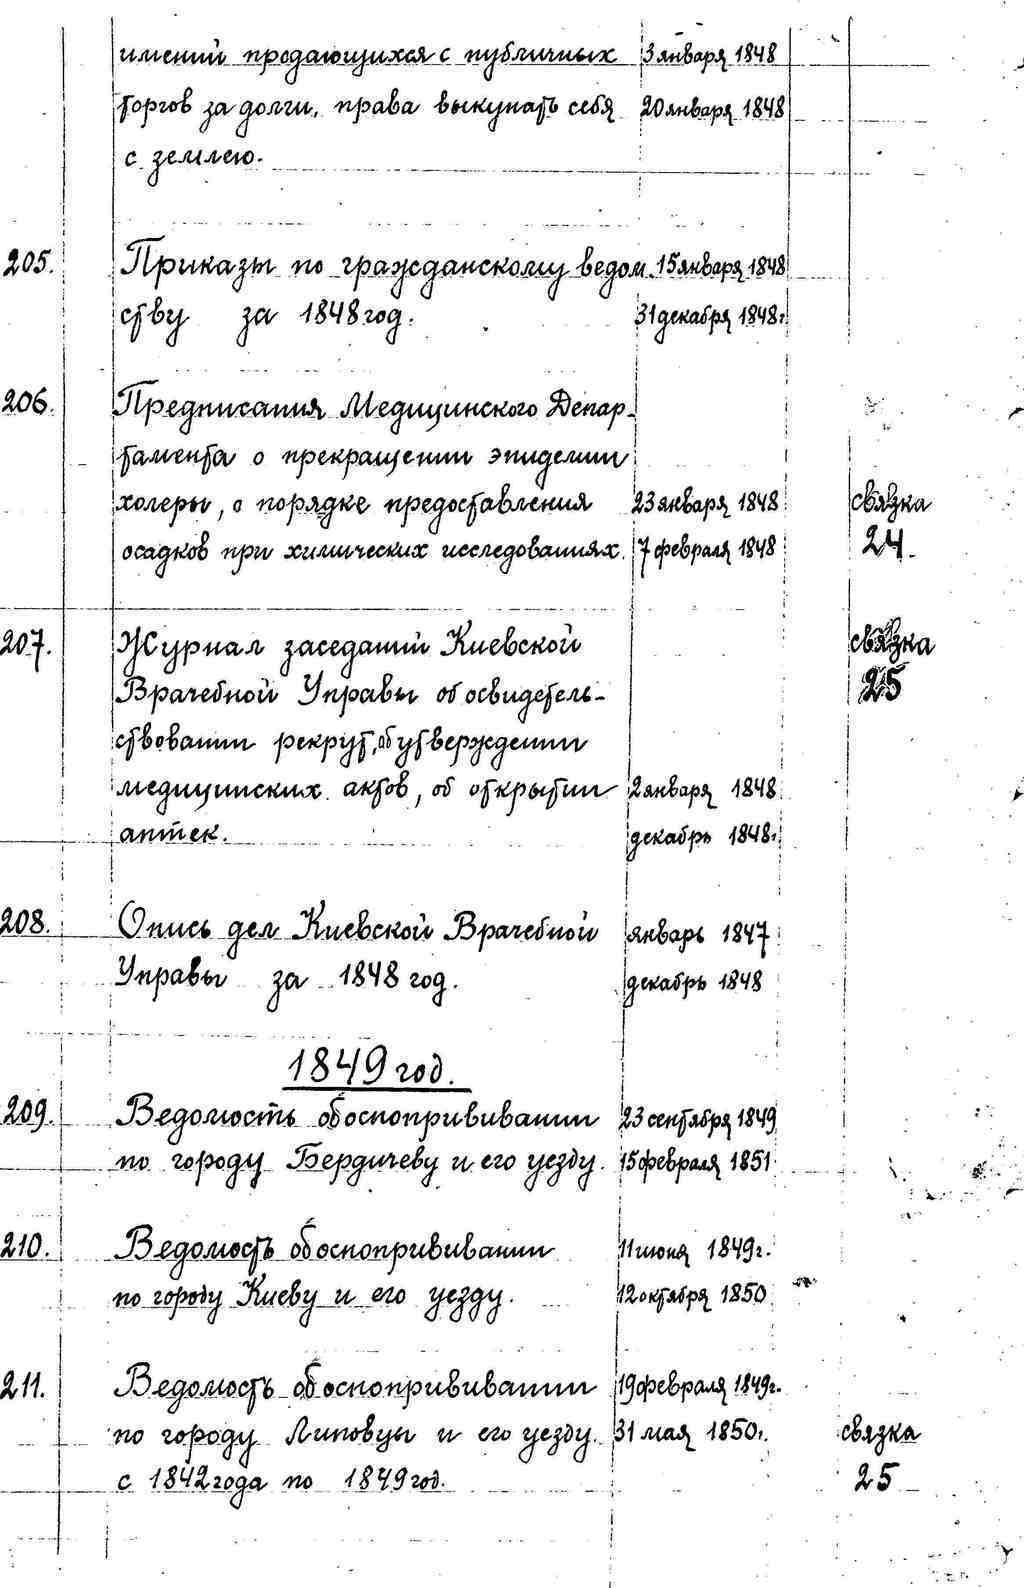 имений продающихся с публичных 3 января 1848
торгов за долги, права выкупать себя 20 января 1848
с землею.
205. Приказы по гражданскому ведом 15 января 1848
ству за 1848 год. 31 декабря 1848 г.
206. Предписания Медицинского Депар-
тамента о прекращении эпидемии
холеры, о порядке предоставления 23 января 1848 связка
осадков при химических исследованиях. 7 февраля 1848 24.
207. Журнал заседаний Киевской связка
Врачебной Управы об освидетель- 25
ствовании рекрут, об утверждении
медицинских актов, об открытии 2 января 1848
аптек. декабрь 1848 г.
208. Опись дел Киевской Врачебной январь 1847
Управы за 1848 год. декабрь 1848
1849 год.
209. Ведомость об оспопрививании 23 сентября 1849
по городу Бердичеву и его уезду. 15 февраля 1851
210. Ведомость об оспопрививании 11 июня 1849 г.
по городу Киеву и его уезду. 12 октября 1850
211. Ведомость об оспопрививании 19 февраля 1849 г.
по городу Липовцы и его уезду. 31 мая 1850 г. связка
с 1842 года по 1849 год. 25